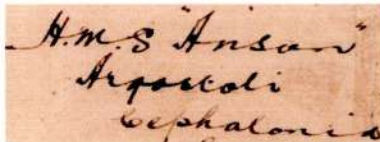 H.M.S "Anson"
Argostoli
Cephalonia